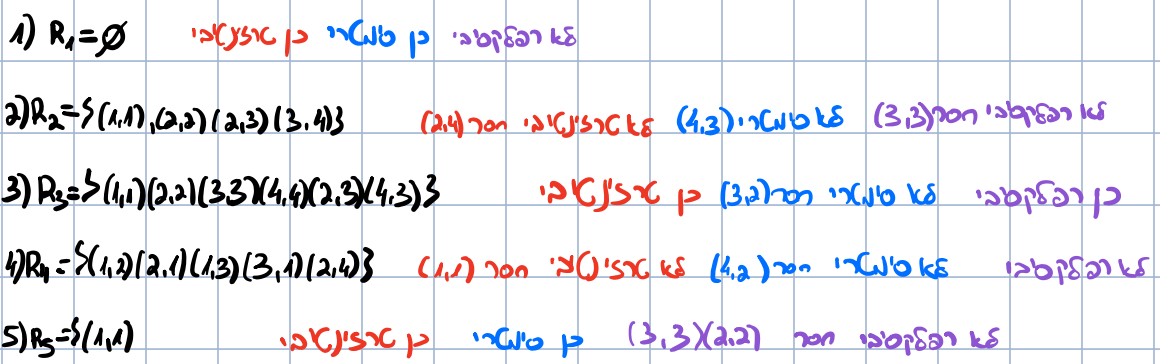 1) R₁=∅ לא רפלקסיבי כן סימטרי כן טרנזיטיבי
2) R₂={(1,1),(2,2)(2,3)(3,4)} לא רפלקסיבי חסר (3,3) לא סימטרי (4,3) לא טרנזיטיבי חסר (2,4)
3) R₃={(1,1)(2,2)(3,3)(4,4)(2,3)(4,3)} כן רפלקסיבי לא סימטרי חסר (3,2) כן טרנזיטיבי
4) R₄={(1,2)(2,1)(1,3)(3,1)(2,4)} לא רפלקסיבי לא סימטרי חסר (4,2) לא טרנזיטיבי חסר (1,1)
5) R₅={(1,1) לא רפלקסיבי חסר (2,2)(3,3) כן סימטרי כן טרנזיטיבי